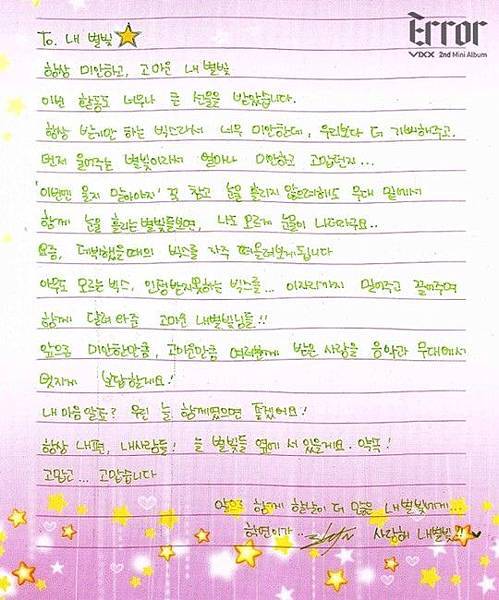 Error
VIXX 2nd Mini Album
To. 내 별빛
항상 미안하고, 고마운 내 별빛
이번 활동도 너무나 큰 선물을 받았습니다.
항상 받게만 하는 빅스라서 너무 미안한데, 우리보다 더 기뻐해주고.
먼저 울어주는 별빛이라서 얼마나 미안하고 고맙던지...
'이번엔 울지 말아야지' 꾹 참고 눈물 흘리지 않으려해도 무대 밑에서
함께 눈물 흘리는 별빛들보면, 나도 모르게 눈물이 나더라구요..
요즘, 데뷔했을때의 빅스를 자주 떠올려보게됩니다
아무도 모르는 빅스, 인정받지못하는 빅스를... 이자리까지 밀어주고 끌어주며
함께 달려와준 고마운 내별빛님들!!
앞으로 미안한만큼, 고마운만큼 여러분께 받은 사랑을 음악과 무대에서
멋지게 보답할게요!
내 마음 알죠? 우린 늘 함께였으면 좋겠어요!
항상 내편, 내사람들! 늘 별빛들 옆에 서 있을게요. 약속!
고맙고... 고맙습니다
앞으로 함께 할날이 더 많을 내별빛에게...
학연이가.. 사랑해 내별빛!!